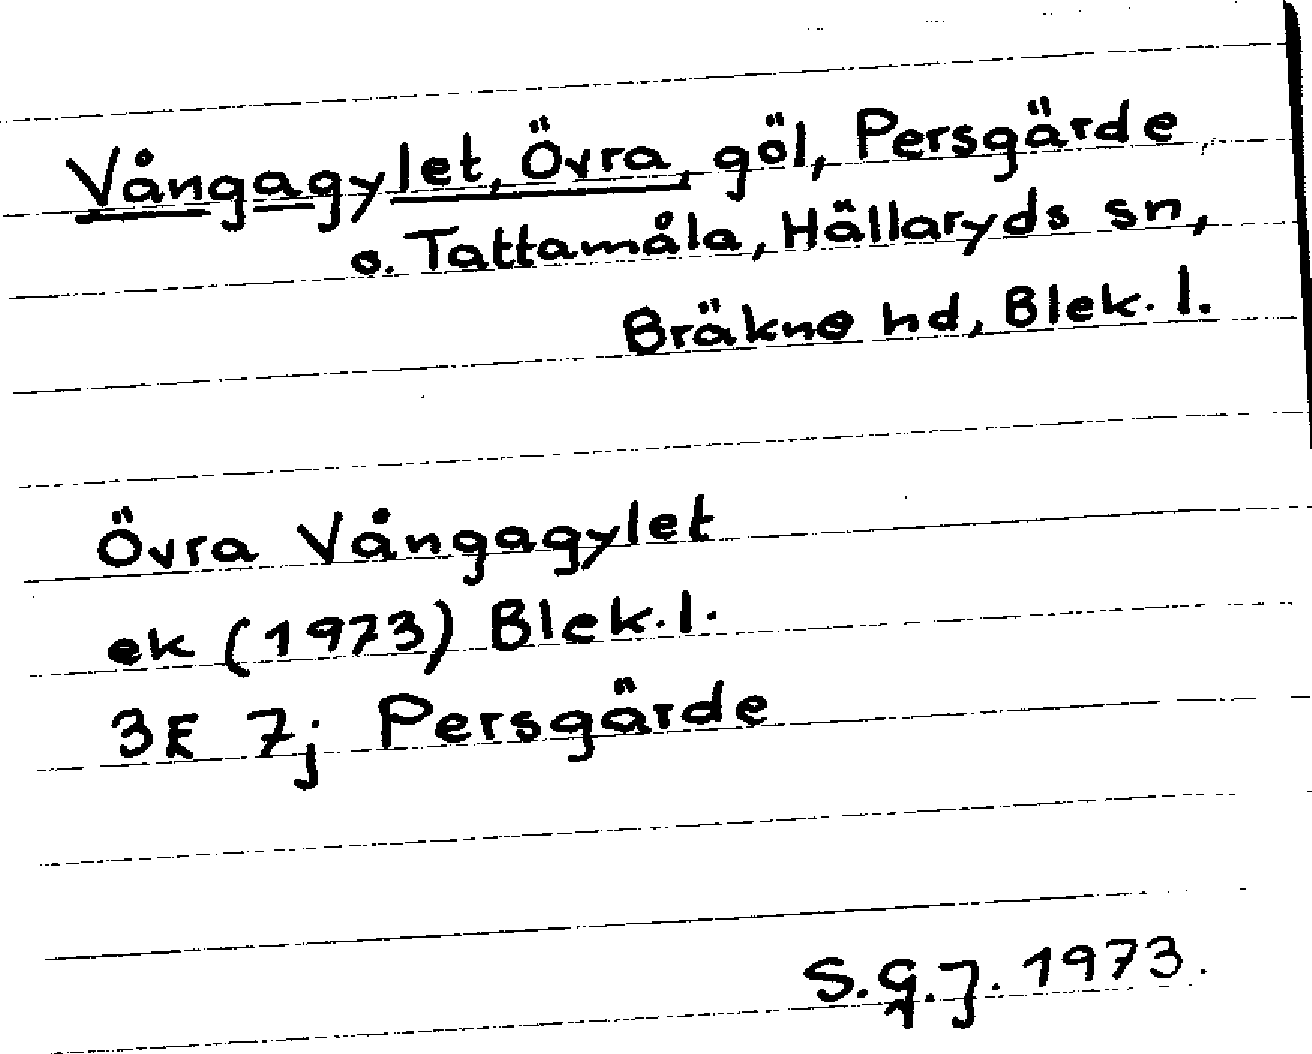 Vångagylet, Övra, göl, Persgärde
o. Tattamåla, Hällaryds sn,
Bräkne hd, Blek. l.
Övra Vångagylet
ek (1973) Blek. l.
3E 7j Persgärde
S.G.J. 1973.